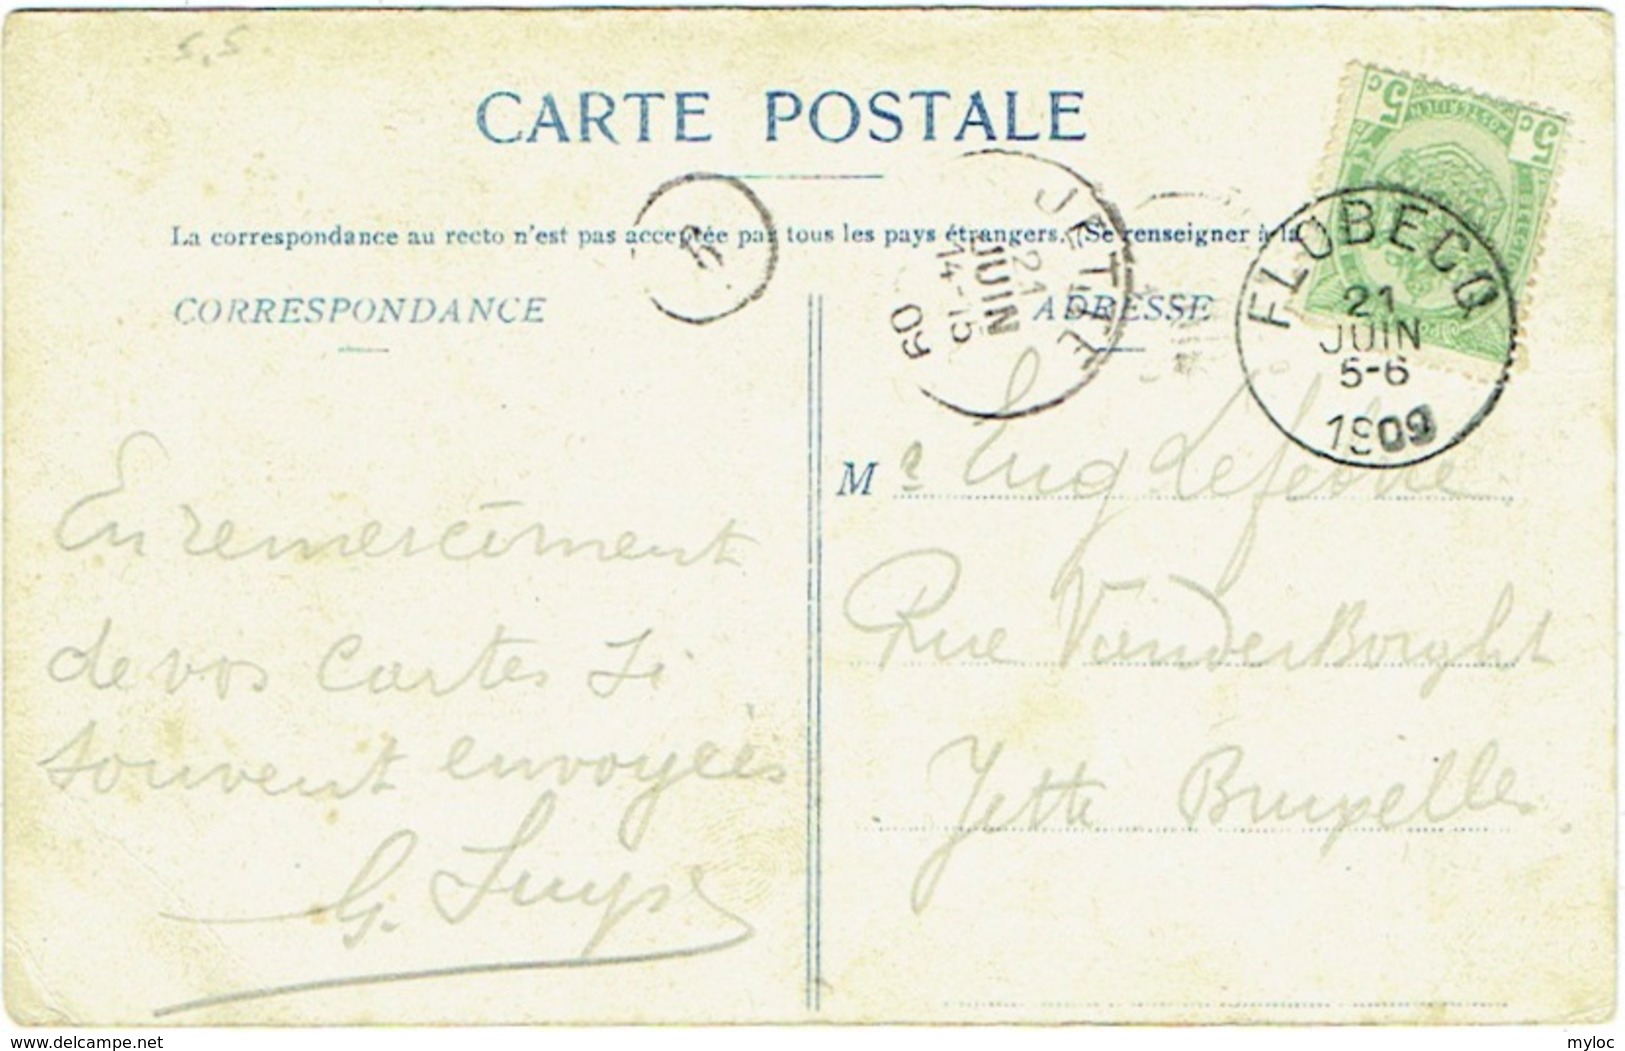 5,5
CARTE POSTALE
La correspondance au recto n'est pas acceptée par tous les pays étrangers. (Se renseigner à la
CORRESPONDANCE
ADRESSE
5
JETTE
21
JUIN
14-15
09
5c
5c
FLOBECQ
21
JUIN
5-6
1909
En remerciment
de vos cartes si
souvent envoyées
G.
Mr Eug Lefebvre
Rue VanderBorght
Jette Bruxelles
delcampe.net
myloc